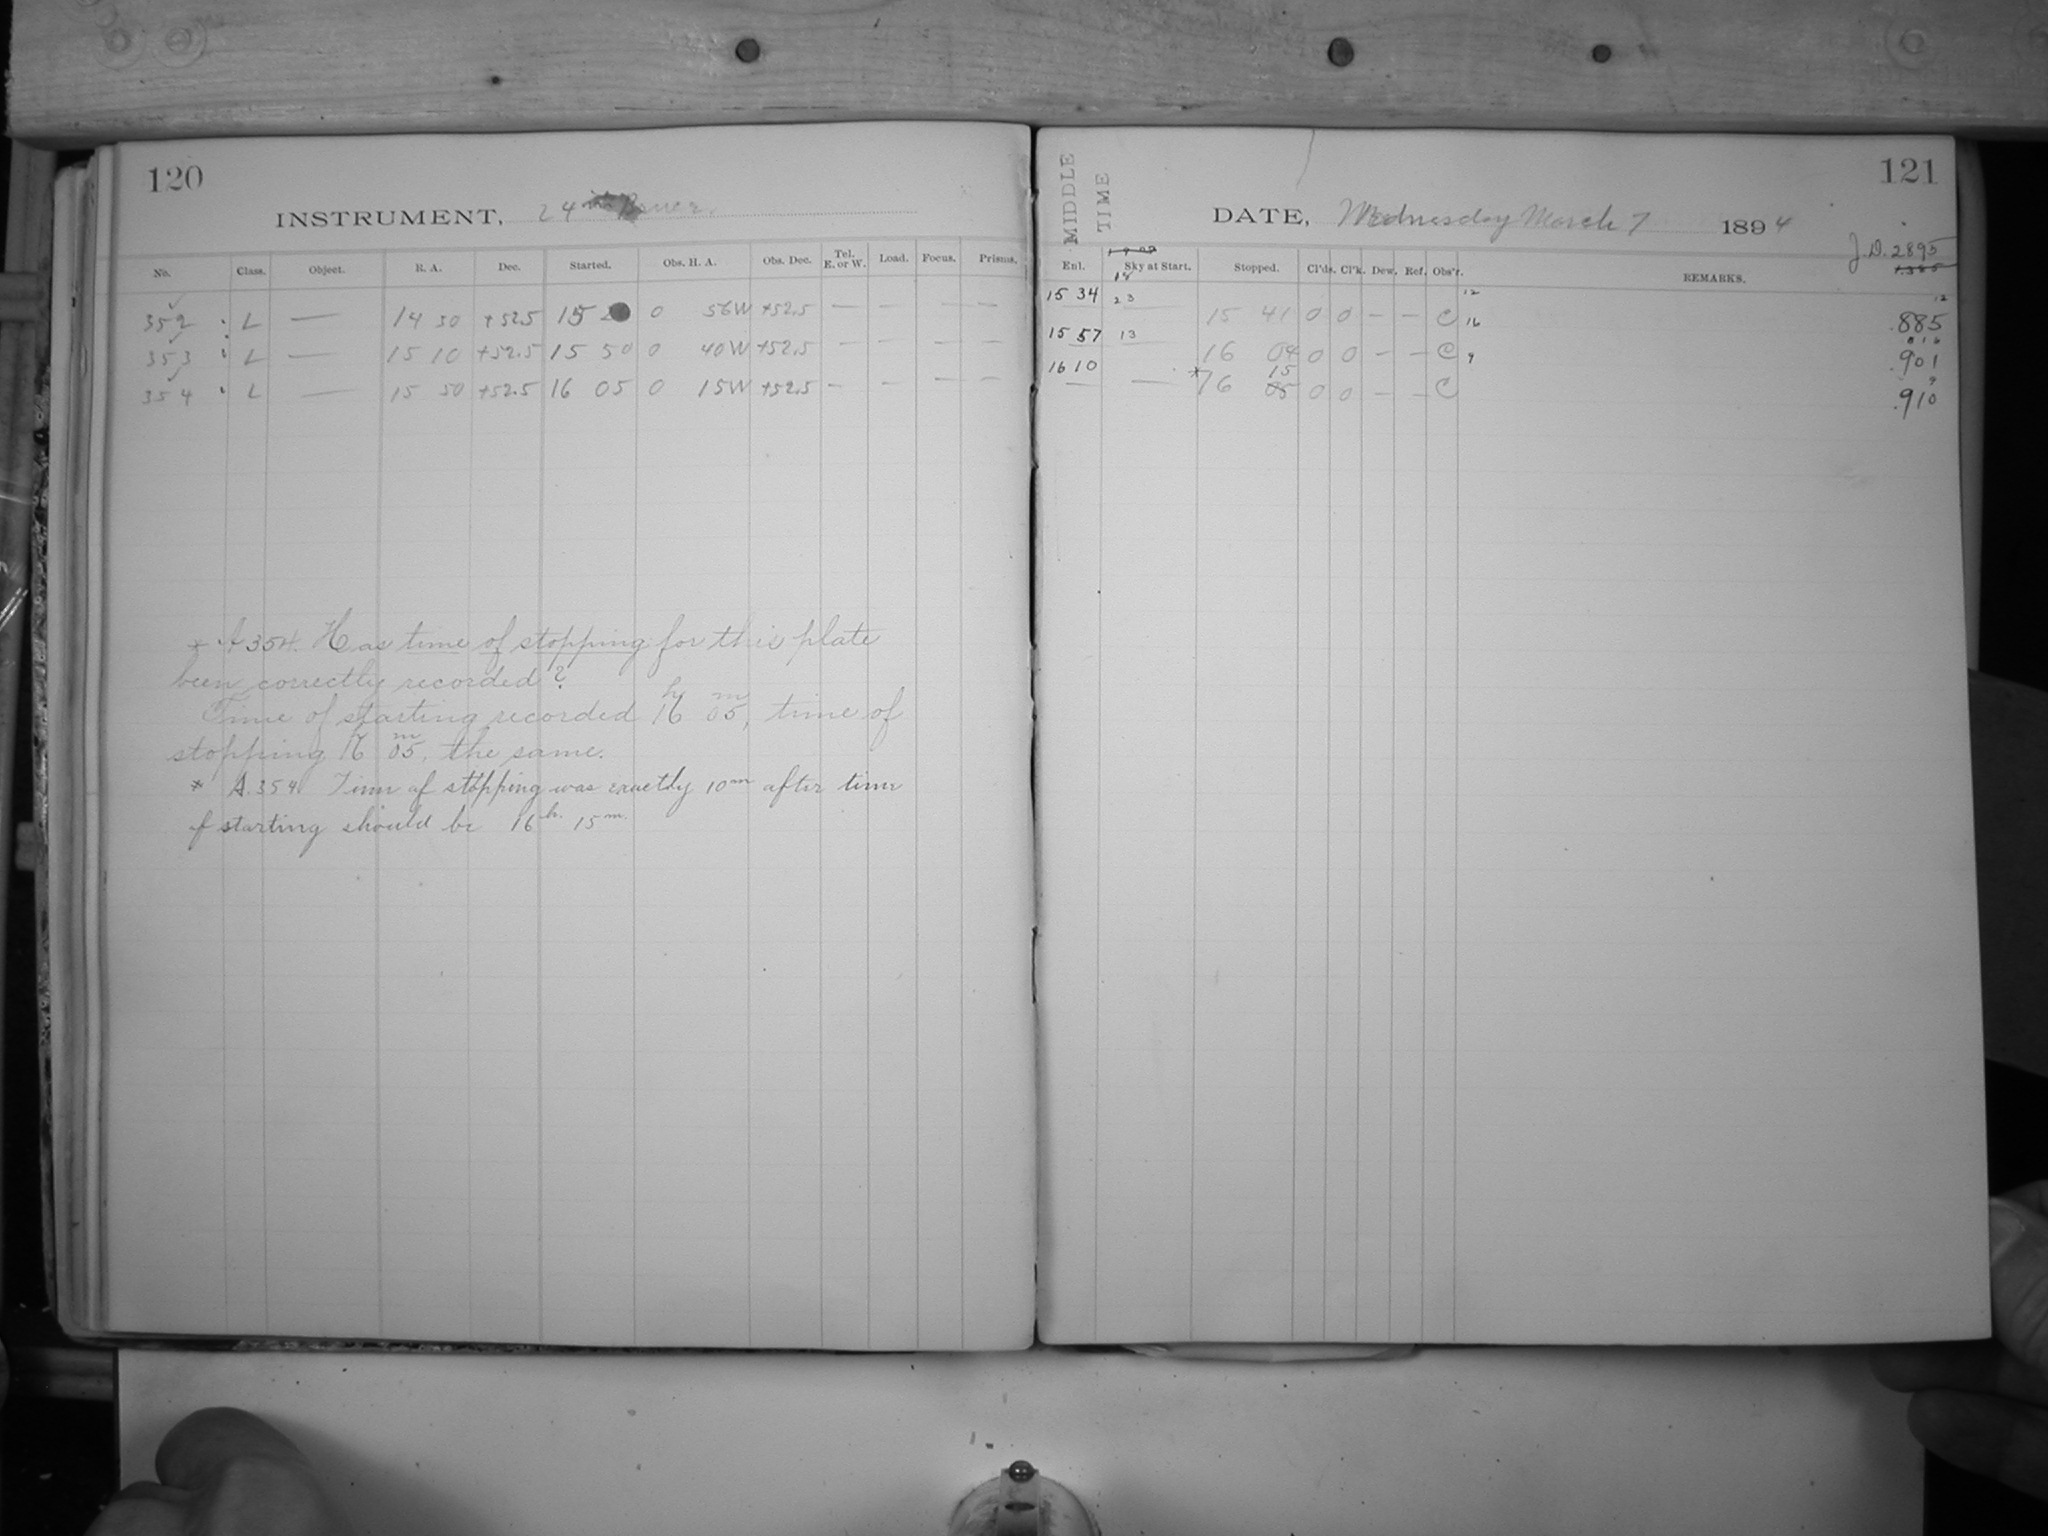 120
INSTRUMENT, 24 in Bruce.
No. Class. Object. R. A. Dec. Started. Obs. H. A. Obs. Dec. Tel. E. or W. Load. Focus. Prisms.
352 L — 14 30 +52.5 15 0 56W +52.5 — — — —
353 L — 15 10 +52.5 15 50 0 40W +52.5 — — — —
354 L — 15 50 +52.5 16 05 0 15W +52.5 — — — —
* A 354. Has time of stopping for this plate
been correctly recorded?
Time of starting recorded 16h 05m, time of
stopping 16 05m, the same.
* A.354 Time of stopping was exactly 10m after time
of starting should be 16h. 15m.
MIDDLE TIME
121
DATE, Wednesday March 7 1894
J.D. 2895
Enl. Sky at Start. Stopped. Cl'ds. Cl'k. Dew. Ref. Obs'r. REMARKS.
18
15 34 23 15 41 0 0 — — C 12 12
.885
15 57 13 16 04 0 0 — — C 16 016
.901
16 10 — * 15 9 9
— 16 05 0 0 — — C .910